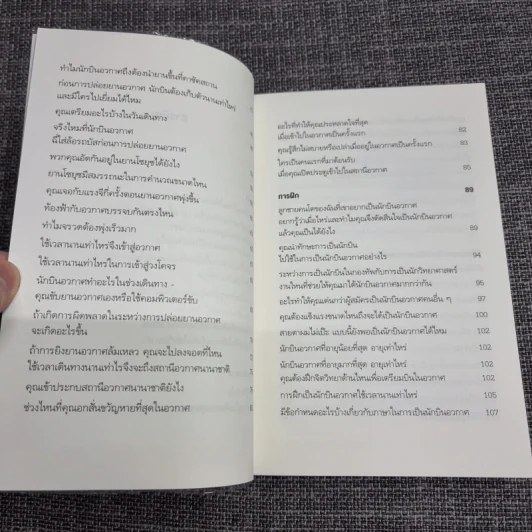 ทำไมนักบินอวกาศถึงต้องนำยานขึ้นที่คาซัคสถาน
ก่อนการปล่อยยานอวกาศ นักบินต้องเก็บตัวนานเท่าไหร่
และมีใครไปเยี่ยมได้ไหม
คุณเตรียมอะไรบ้างในวันเดินทาง
จริงไหมที่นักบินอวกาศ
ฉี่ใส่ล้อรถบัสก่อนการปล่อยยานอวกาศ
พวกคุณอัดกันอยู่ในยานโซยุซได้ยังไง
ยานโซยุซมีสมรรถนะในการคำนวณขนาดไหน
คุณเจอกับแรงจีกี่ครั้งตอนยานอวกาศพุ่งขึ้น
ท้องฟ้ากับอวกาศบรรจบกันตรงไหน
ทำไมจรวดต้องพุ่งเร็วมาก
ใช้เวลานานเท่าไหร่จึงเข้าสู่อวกาศ
ใช้เวลานานเท่าไหร่ในการเข้าสู่วงโคจร
นักบินอวกาศทำอะไรในช่วงเดินทาง -
คุณขับยานอวกาศเองหรือใช้คอมพิวเตอร์ขับ
ถ้าเกิดการผิดพลาดในระหว่างการปล่อยยานอวกาศ
จะเกิดอะไรขึ้น
ถ้าการยิงยานอวกาศล้มเหลว คุณจะไปลงจอดที่ไหน
ใช้เวลาเดินทางนานเท่าไหร่จึงจะถึงสถานีอวกาศนานาชาติ
คุณเข้าประกบสถานีอวกาศนานาชาติยังไง
ช่วงไหนที่คุณอกสั่นขวัญหายที่สุดในอวกาศ
อะไรที่ทำให้คุณประหลาดใจที่สุด
เมื่อเข้าไปในอวกาศเป็นครั้งแรก 82
คุณรู้สึกไม่สบายหรือเปล่าเมื่ออยู่ในอวกาศเป็นครั้งแรก 83
ใครเป็นคนแรกที่มาต้อนรับ
เมื่อคุณเปิดประตูเข้าไปในสถานีอวกาศ 86
การฝึก 89
ลูกชายคนโตของฉันที่เขาอยากเป็นนักบินอวกาศ
อยากรู้ว่าเมื่อไหร่และทำไมคุณจึงตัดสินใจเป็นนักบินอวกาศ
แล้วคุณเป็นได้ยังไง 91
คุณนำทักษะการเป็นนักบิน
ไปใช้ในการเป็นนักบินอวกาศอย่างไร 94
ระหว่างการเป็นนักบินในกองทัพกับการเป็นนักวิทยาศาสตร์
งานไหนที่ช่วยให้คุณมาได้นักบินอวกาศมากกว่ากัน 95
อะไรทำให้คุณเด่นกว่าผู้สมัครเป็นนักบินอวกาศคนอื่น ๆ 97
คุณต้องแข็งแรงขนาดไหนถึงจะได้เป็นนักบินอวกาศ 100
สายตาผมไม่เป๊ะ แบบนี้ยังพอเป็นนักบินอวกาศได้ไหม 102
นักบินอวกาศที่อายุน้อยที่สุด อายุเท่าไหร่ 102
นักบินอวกาศที่อายุมากที่สุด อายุเท่าไหร่ 102
คุณต้องฝึกจิตวิทยาด้านไหนเพื่อเตรียมบินในอวกาศ 102
การฝึกเป็นนักบินอวกาศใช้เวลานานเท่าไหร่ 105
มีข้อกำหนดอะไรบ้างเกี่ยวกับภาษาในการเป็นนักบินอวกาศ 107